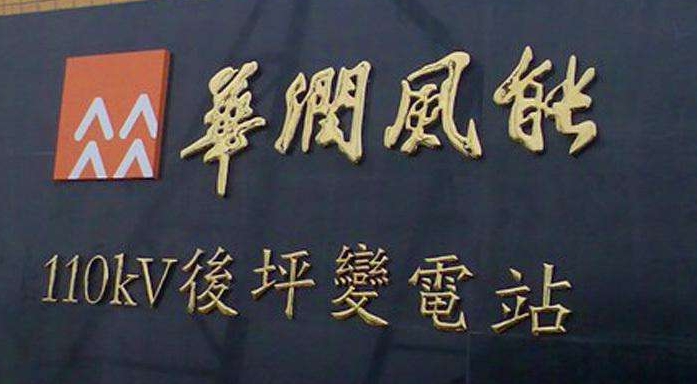 華潤風能
110kV後坪變電站